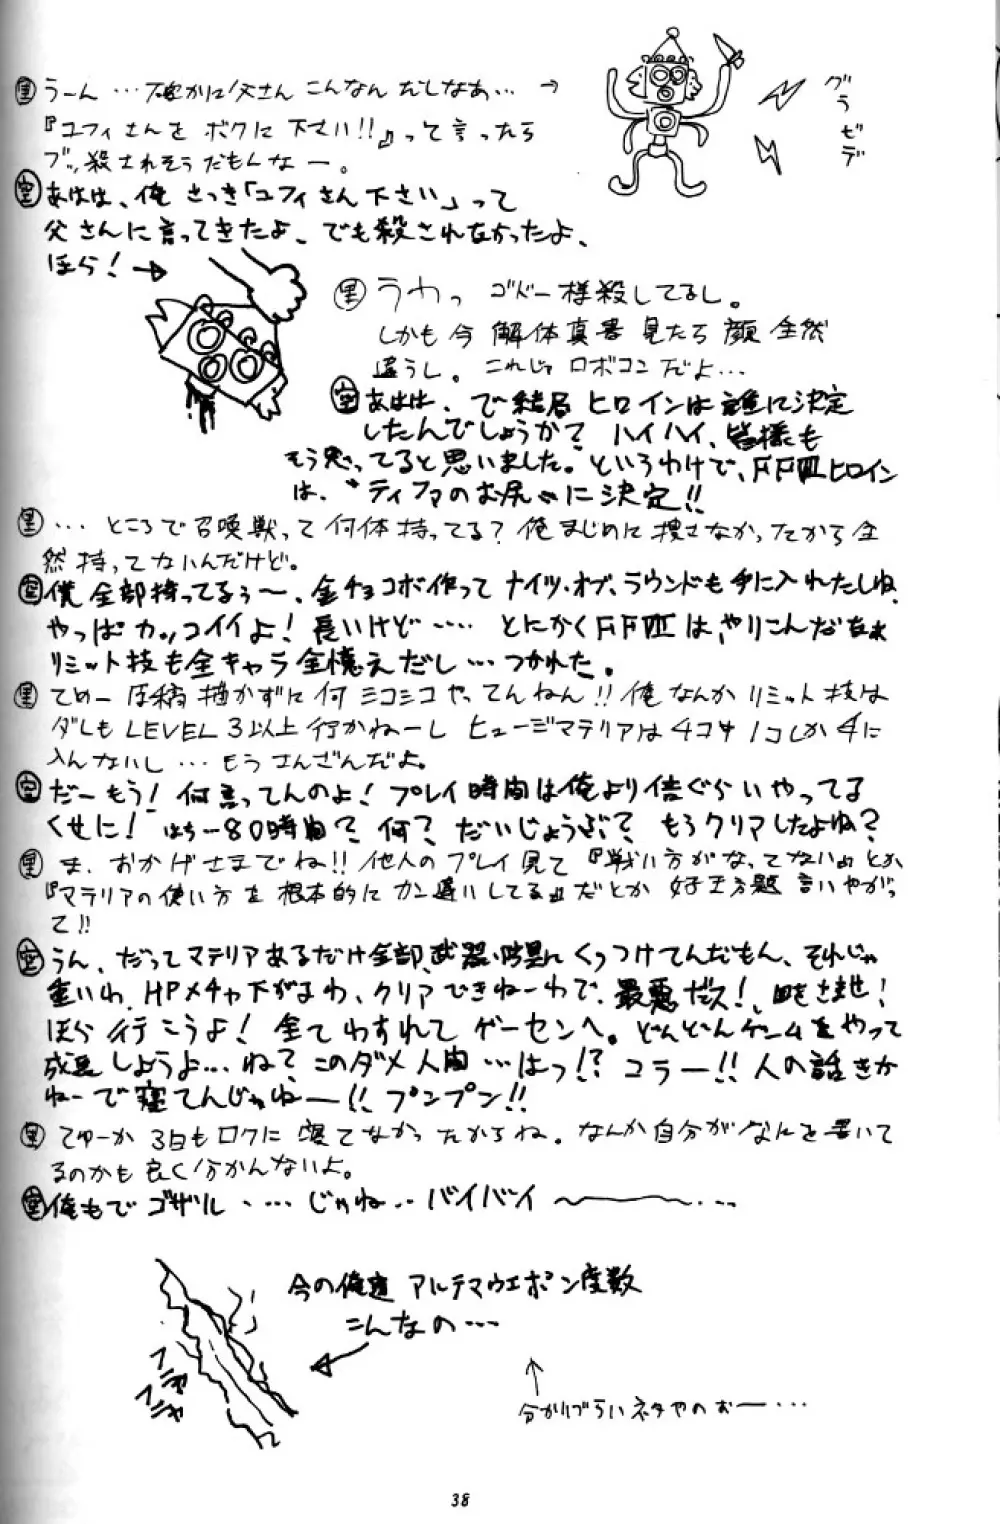 里 うーん…確かに父さんこんなんだしなあ… →
『ユフィさんをボクに下さい!!』って言ったら
ブッ殺されそうだもんなー。
グラビデ
空 あはは、俺さっき「ユフィさん下さい」って
父さんに言ってきたよ、でも殺されなかったよ、
ほら!→
里 うわっ ゴドー様殺してるし。
しかも今 解体真書 見たら 顔 全然
違うし。これじゃロボコンだよ…
空 あはは、で結局ヒロインは誰に決定
したんでしょうか? ハイハイ、皆様も
もう思ってると思いました。というわけで、FFⅦヒロイン
は、"ティファのお尻"に決定!!
里 …ところで召喚獣って何体持ってる?俺まじめに捜さなかったから全
然持ってないんだけど。
空 僕全部持ってるぅ〜、金チョコボ作ってナイツ・オブ・ラウンドも手に入れたしね、
やっぱカッコイイよ!長いけど…‥とにかくFFⅦは、やりこんだなぁ
リミット技も全キャラ全憶えだし…つかれた。
里 てめー原稿描かずに何ミコミコやってんねん!!俺なんかリミット技は
ダレもLEVEL3以上行かねーしヒュージマテリアは4コ中1コしか手に
入んないし…もうさんざんだよ。
空 だーもう!何言ってんのよ!プレイ時間は俺より倍ぐらいやってる
くせに! はちー80時間?何?だいじょうぶ?もうクリアしたよね?
里 ま、おかげさまでね!!他人のプレイ見て『戦い方がなってない』とか
『マテリアの使い方を根本的にカン違いしてる』だとか 好き方題言いやがっ
て!!
空 うん、だってマテリアあるだけ全部、武器・防具にくっつけてんだもん、それじゃ
重いわ、HPメチャ下がるわ、クリアできねーわで、最悪だス!、
ほら行こうよ!全てわすれてゲーセンへ。どんどんゲームをやって
成長しようよ…ね?このダメ人間…はっ!?コラー!!人の話きか
ねーで寝てんじゃねー!!プンプン!!
里 てゆーか3日もロクに寝てなかったからね。なんか自分がなにを書いて
るのかも良く分かんないよ。
空 俺もでゴザル‥…じゃね‥バイバイ〜…
今の俺達アルテマウエポン度数
こんなの…
フニャフニャ
↑
分かりづらいネタやのぉー…
38